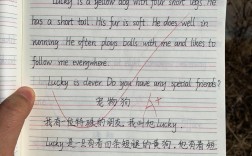 Lucky is a yellow dog with four short legs. He
has a short tail. His fur is soft. He does well in
running. He often plays balls with me and likes to
follow me everywhere.
Lucky is clever. Do you have any special friends?
宠物狗 A+
我有一位特殊的朋友,我叫他Lucky.
Lucky是一只有着四条短腿的黄狗,他有着短